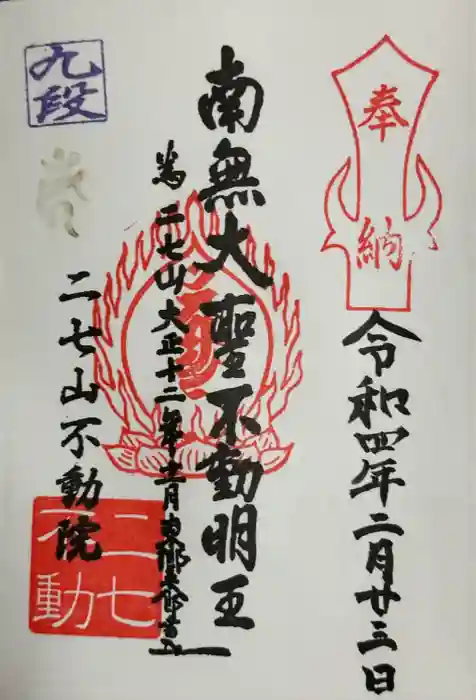 奉納
令和四年二月廿三日
南無大聖不動明王
二七山大正十二年十二月
二七山不動院
九段
二七不動